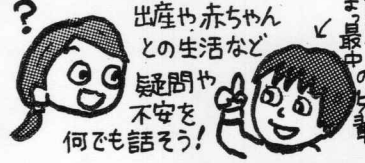 ?
出産や赤ちゃん
との生活など
疑問や
不安を
何でも話そう!
最中の